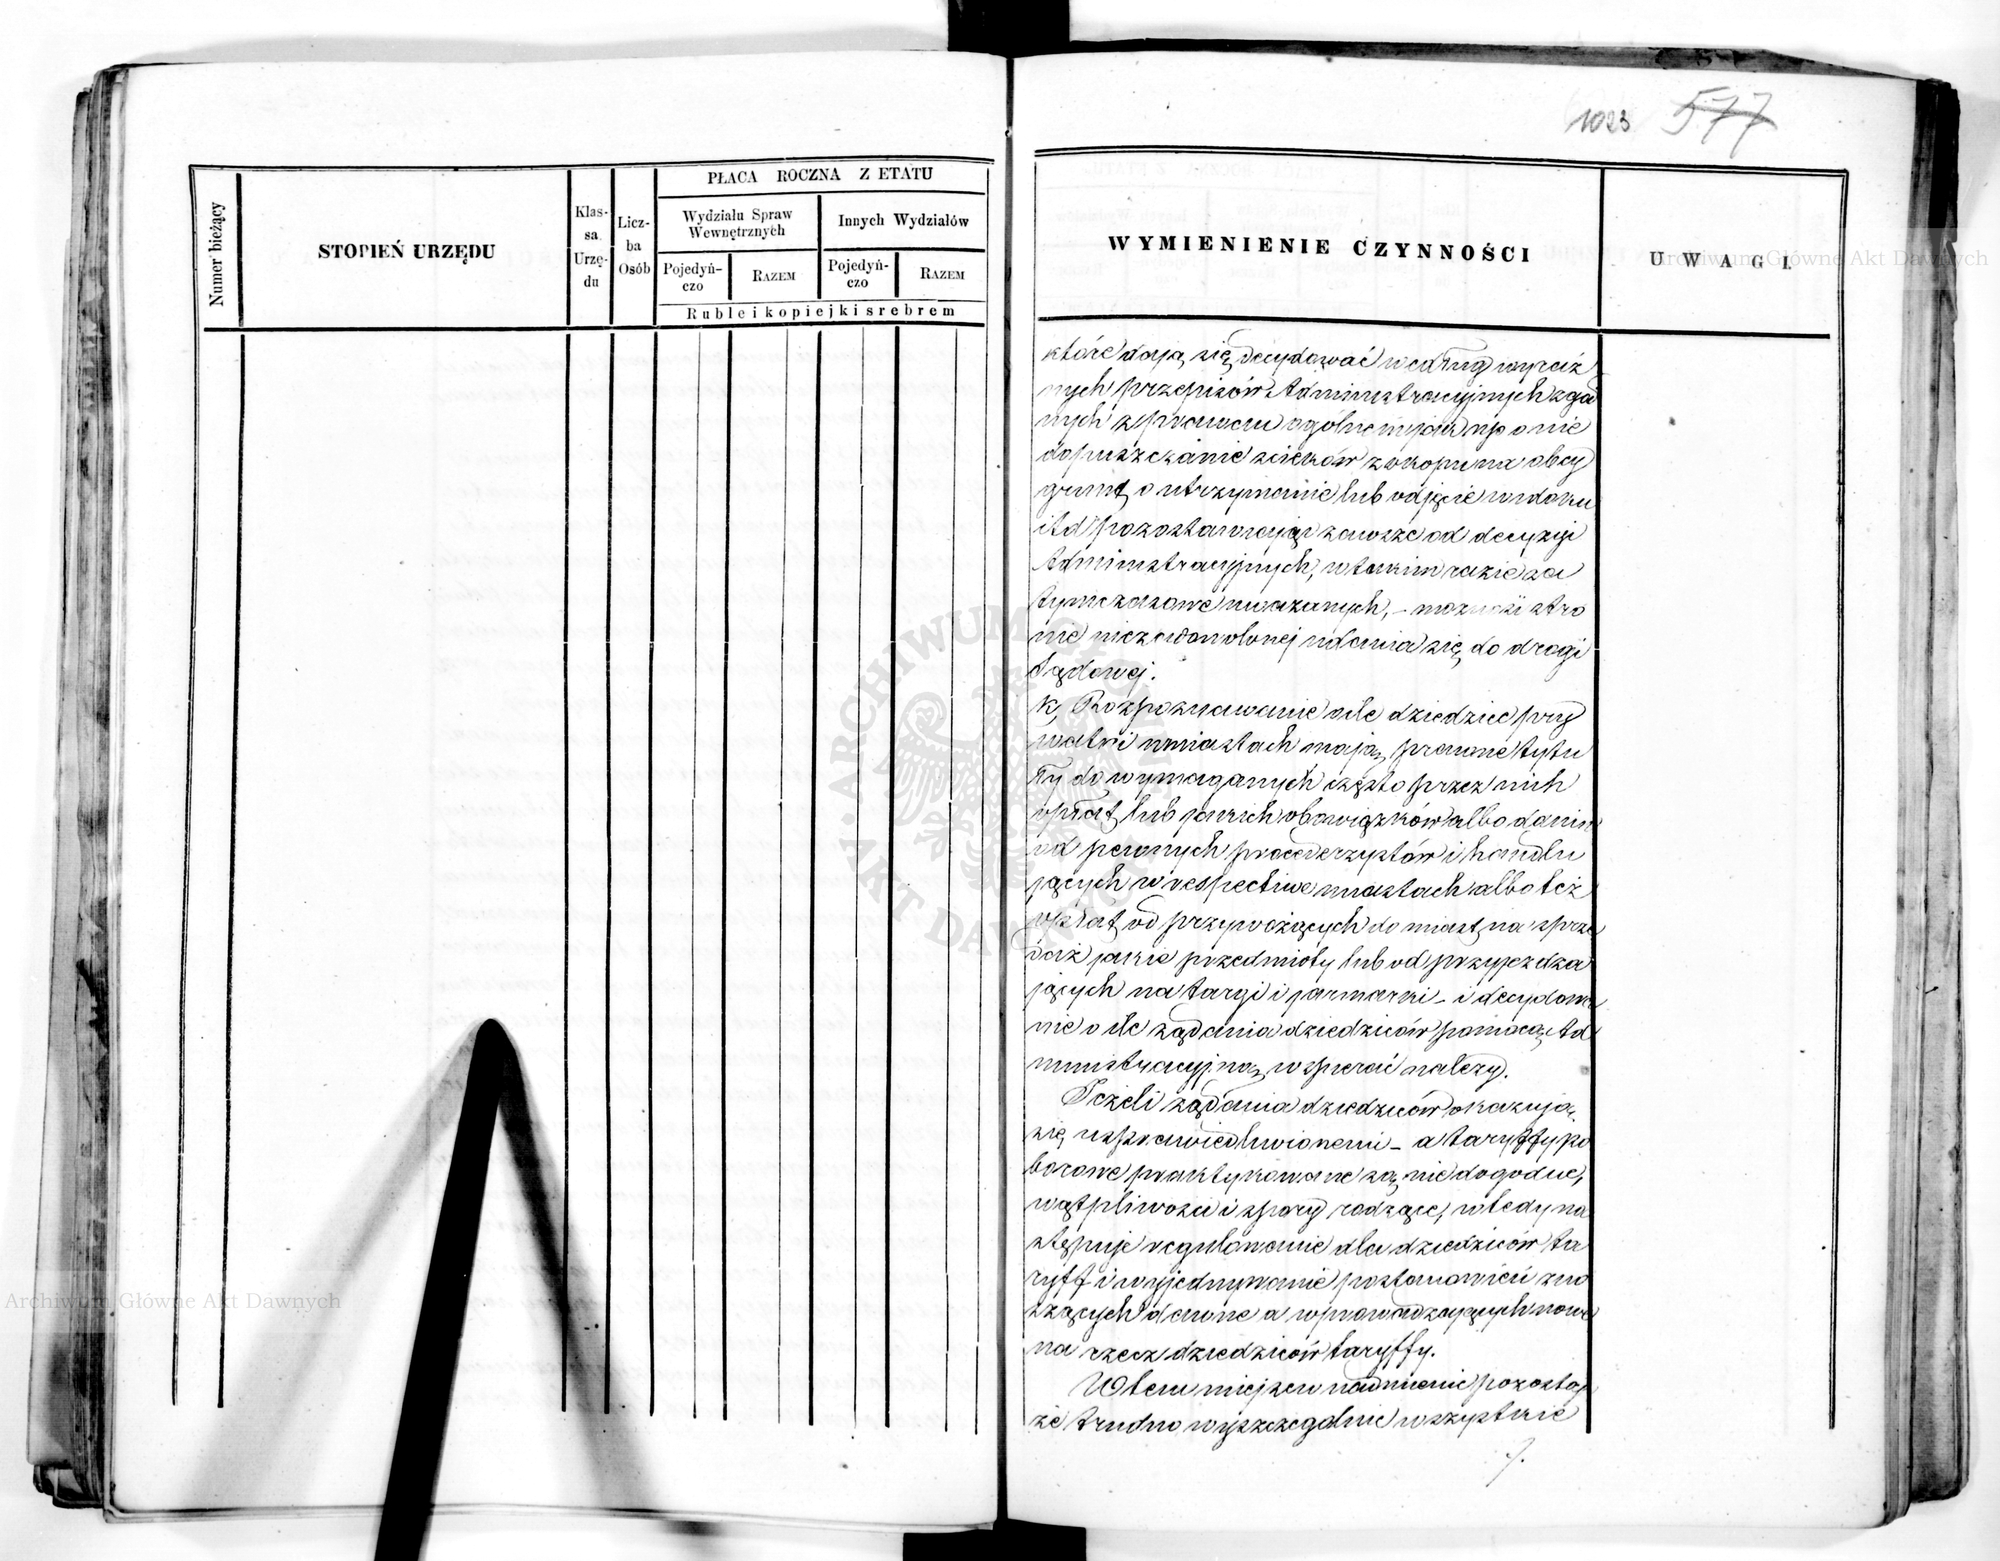 1023 577
Numer bieżący
STOPIEŃ URZĘDU
Klas-
sa
Urzę-
du
Licz-
ba
Osób
PŁACA ROCZNA Z ETATU
Wydziału Spraw
Wewnętrznych
Innych Wydziałów
Pojedyń-
czo
RAZEM
Pojedyń-
czo
RAZEM
Ruble i kopiejki srebrem
WYMIENIENIE CZYNNOŚCI
UWAGI.
które dają się decydować według wyraź
nych przepisów Administracyjnych zgod
nych z prawem ogólnem jako np o nie
dopuszczanie ścieków z okopu na obcy
grunt, o utrzymanie lub odjęcie widoku
itd pozostawiając zawsze od decyzji
Administracyjnych, w takim razie za
tymczasowe uważanych, – możność stro
nie niezadowolonej udania się do drogi
sądowej.
k, Rozpoznawanie o ile dziedzice pry
watni w miastach mają prawne tytu
ły do wymaganych często przez nich
opłat, lub jakich obowiązków albo danin
od pewnych procederzystów i handlu
jących w respective miastach albo też
opłat od przywożących do miast na sprze
daż jakie przedmioty lub od przyjeżdża
jących na targi i jarmarki – i decydowa
nie o ile żądania dziedziców pomocą Ad
ministracyjną wspierać należy.
Jeżeli żądania dziedziców okazują
się usprawiedliwionemi – a taryffy po
borowe praktykowane są niedogodne,
wątpliwości i spory rodzące, wtedy na
stępuje regulowanie dla dziedziców ta
ryff i wyjednywanie postanowień zno
szących dawne a wprowadzających nowe
na rzecz dziedziców taryffy.
W tem miejscu nadmienić pozostaje
że trudno wyszczególnić wszystkie
ARCHIWUM GŁÓWNE AKT DAWNYCH
Archiwum Główne Akt Dawnych
Archiwum Główne Akt Dawnych